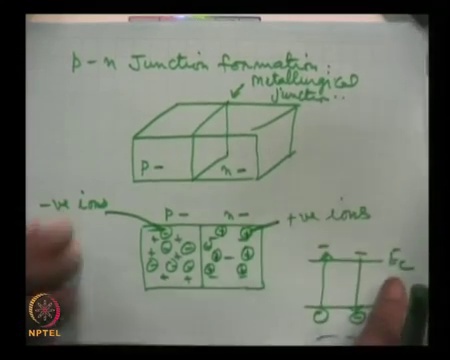 p-n Junction formation:
metallurgical
junction..
p- n-
-ve ions p- n- +ve ions
Ec
NPTEL